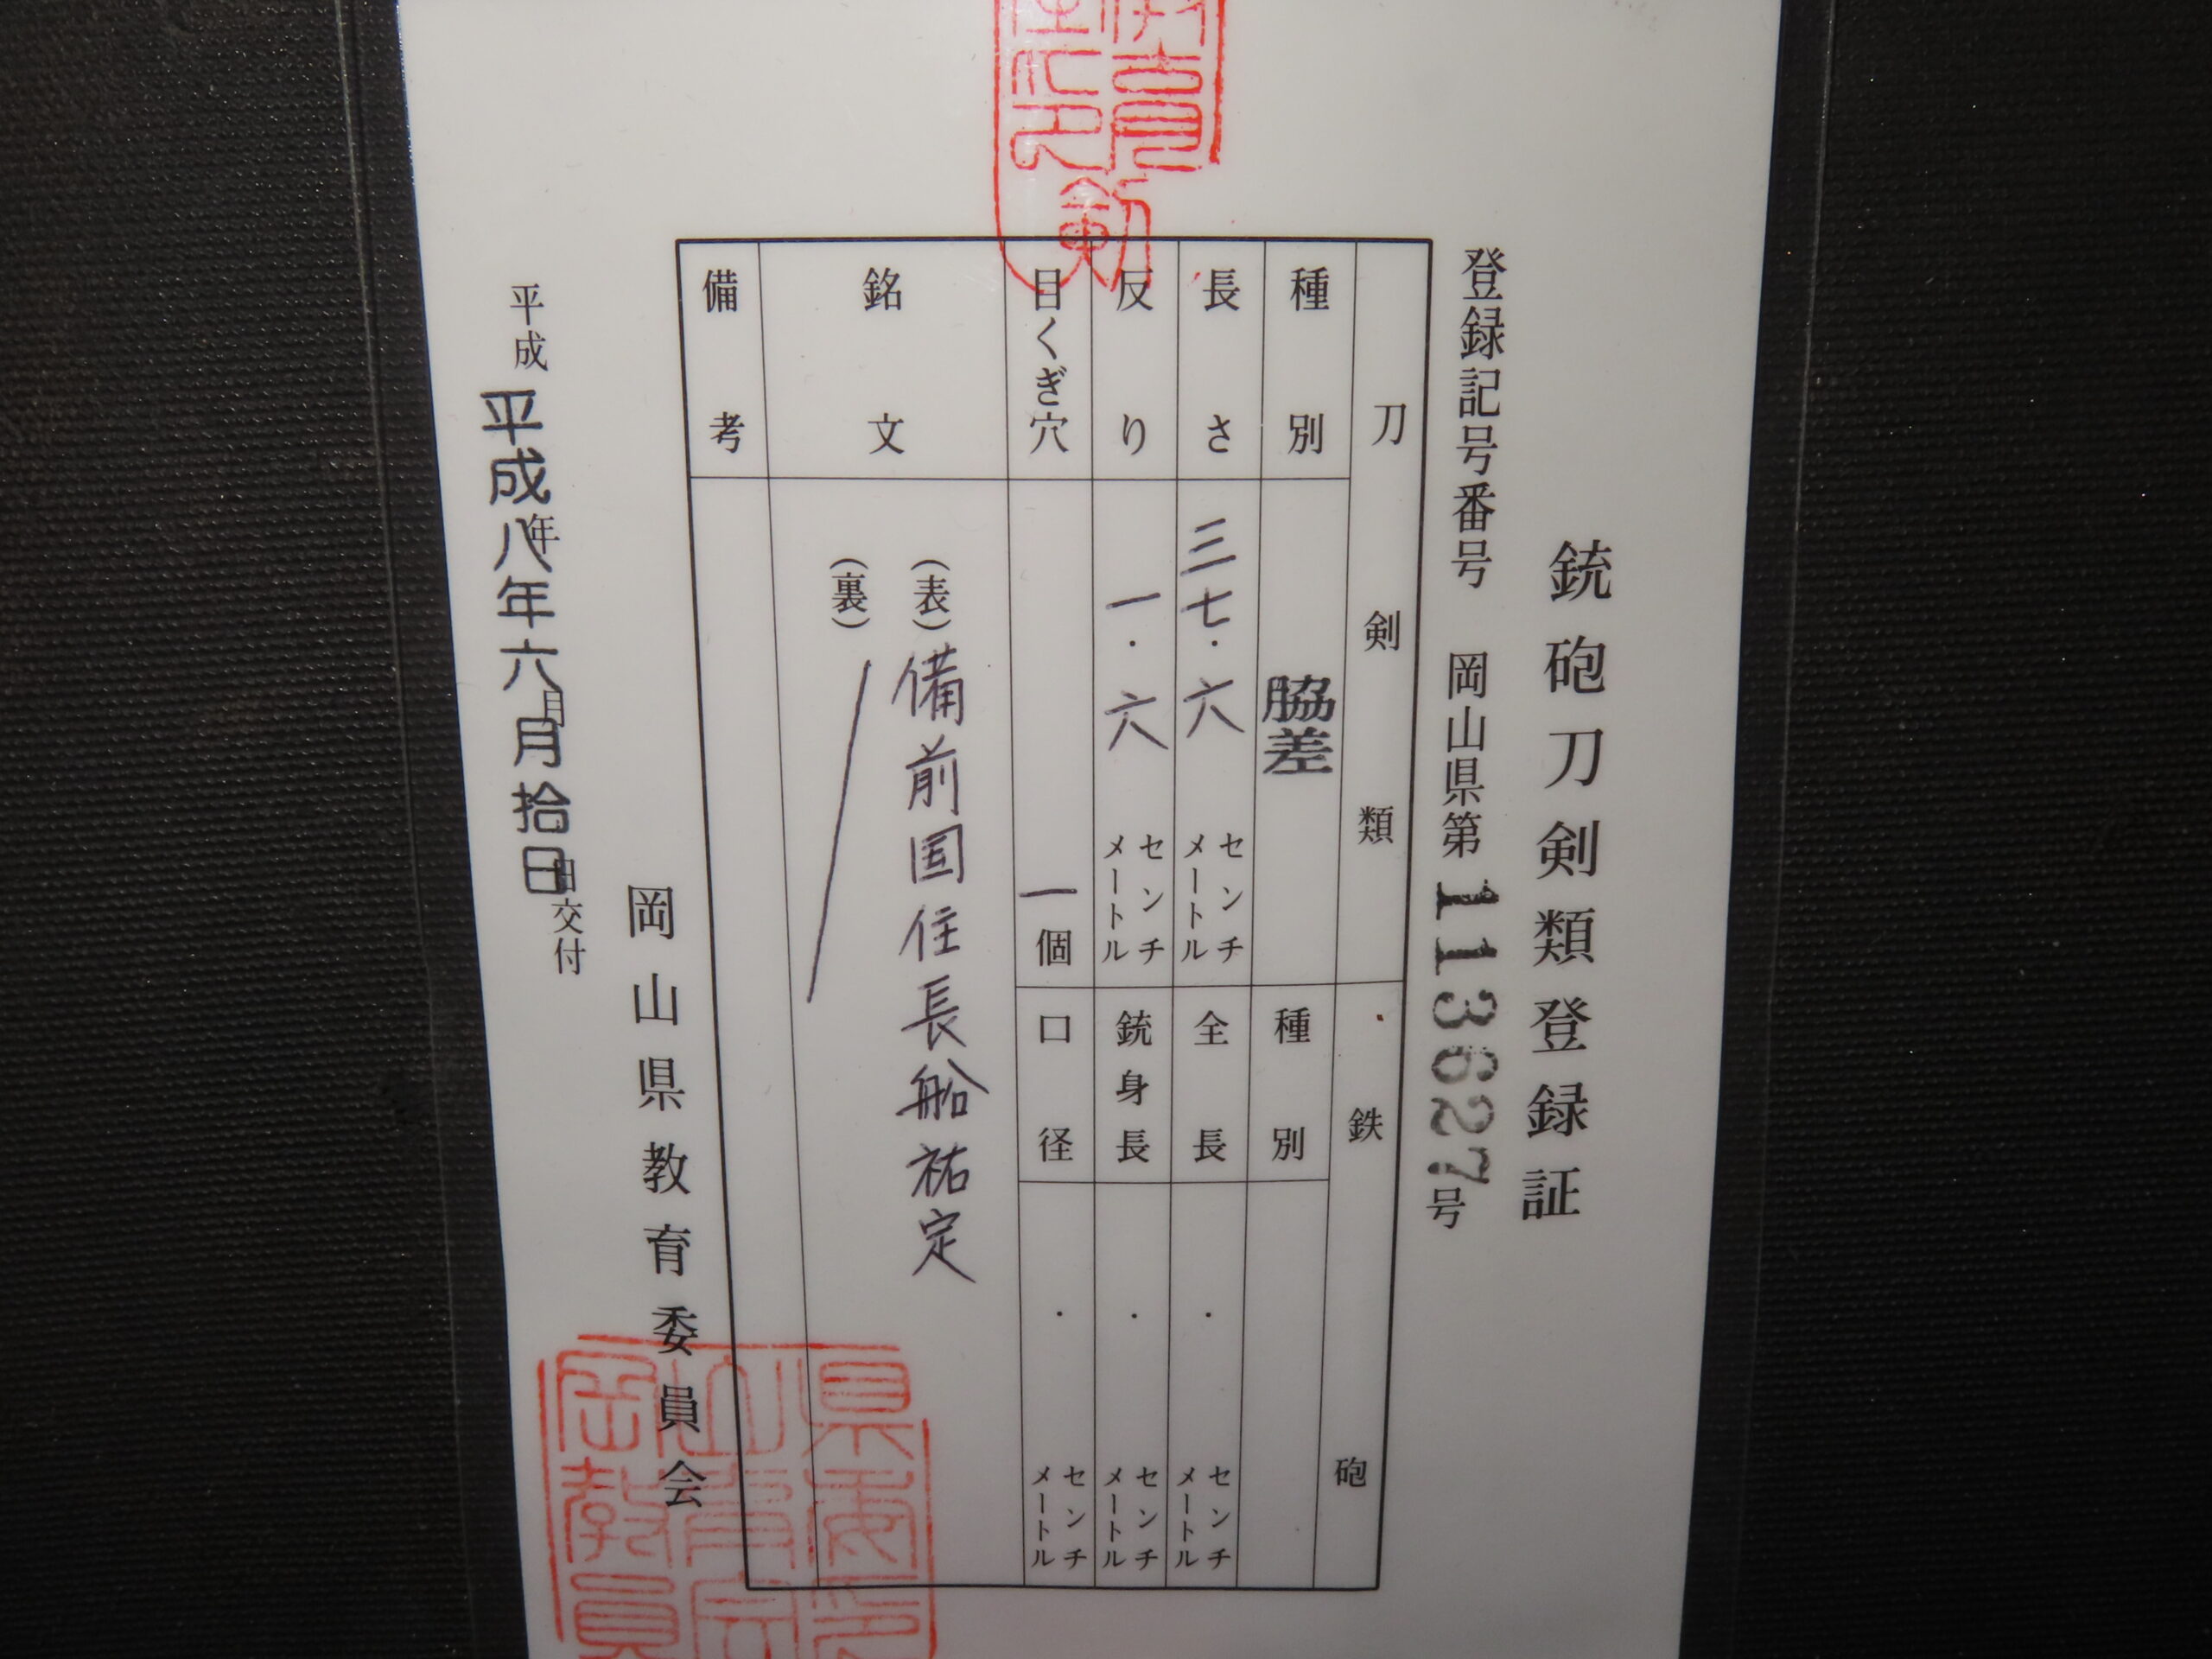 銃砲刀剣類登録証
登録記号番号 岡山県第113627号
刀剣類
種別 脇差
長さ 三七・六 センチメートル
反り 一・六 センチメートル
目くぎ穴 一個
銘文 (表)備前国住長船祐定
(裏)
備考
鉄砲
種別
全長 ・ センチメートル
銃身長 ・ センチメートル
口径 ・ センチメートル
岡山県教育委員会
平成 年 月 日交付
平成八年六月拾日
岡山県教育委員会印